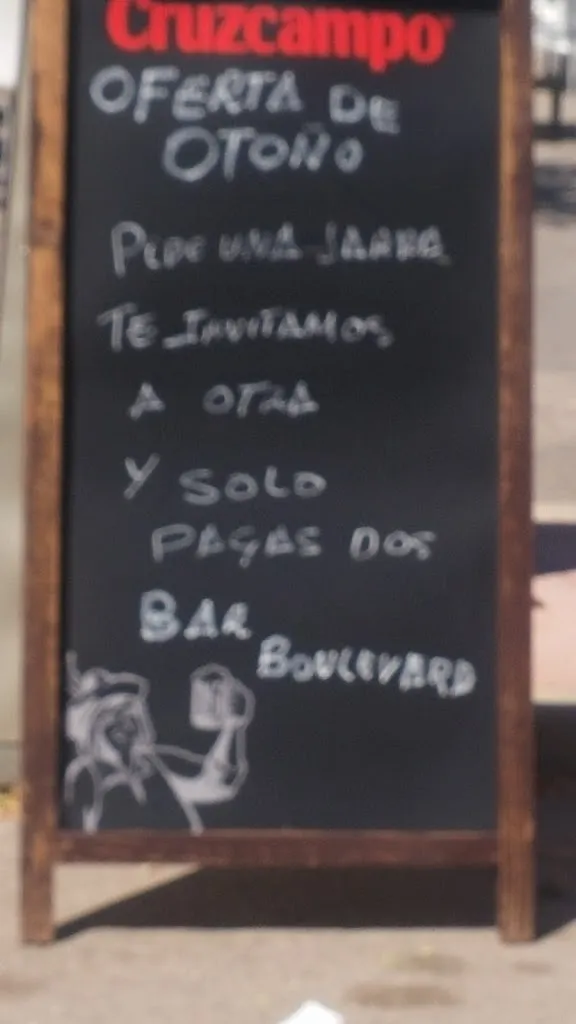 Cruzcampo
OFERTA DE
OTOÑO
PIDE UNA JARRA
TE INVITAMOS
A OTRA
Y SOLO
PAGAS DOS
BAR
BOULEVARD